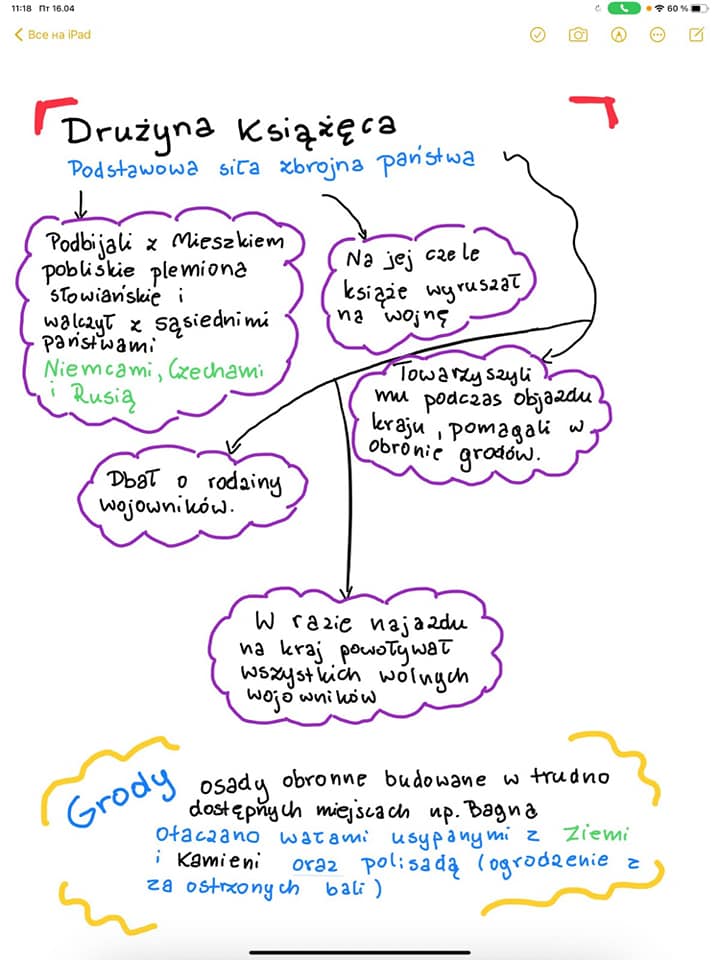 11:18 Пт 16.04
60 %
Все на iPad
Drużyna Książęca
Podstawowa siła zbrojna państwa
Podbijali z Mieszkiem
pobliskie plemiona
słowiańskie i
walczył z sąsiednimi
państwami
Niemcami, Czechami
i Rusią
Na jej czele
książe wyruszał
na wojnę
Towarzyszyli
mu podczas objazdu
kraju, pomagali w
obronie grodów.
Dbał o rodziny
wojowników.
W razie najazdu
na kraj powoływał
wszystkich wolnych
wojowników
Grody osady obronne budowane w trudno
dostępnych miejscach np. Bagna
Otaczano wałami usypanymi z Ziemi
i Kamieni oraz polisadą (ogrodzenie z
za ostrzonych bali)